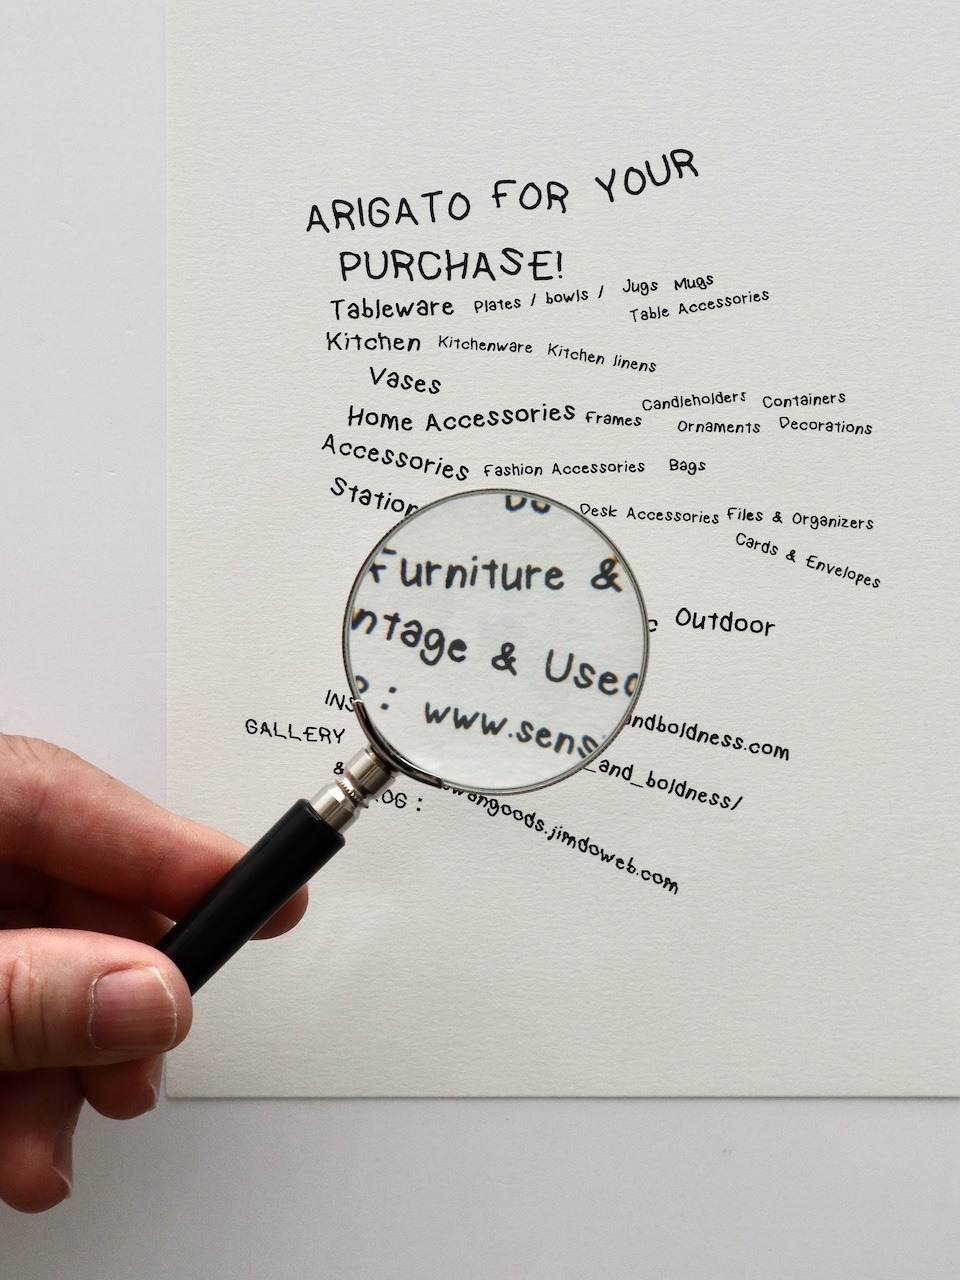 ARIGATO FOR YOUR
PURCHASE!
Tableware Plates / bowls / Jugs Mugs
Table Accessories
Kitchen Kitchenware Kitchen linens
Vases
Home Accessories Frames Candleholders Containers
Ornaments Decorations
Accessories Fashion Accessories Bags
Station Desk Accessories Files & Organizers
Cards & Envelopes
Furniture & Outdoor
ntage & Used
: www.sens andboldness.com
INS _and_boldness/
GALLERY
& OG : wangoods.jimdoweb.com